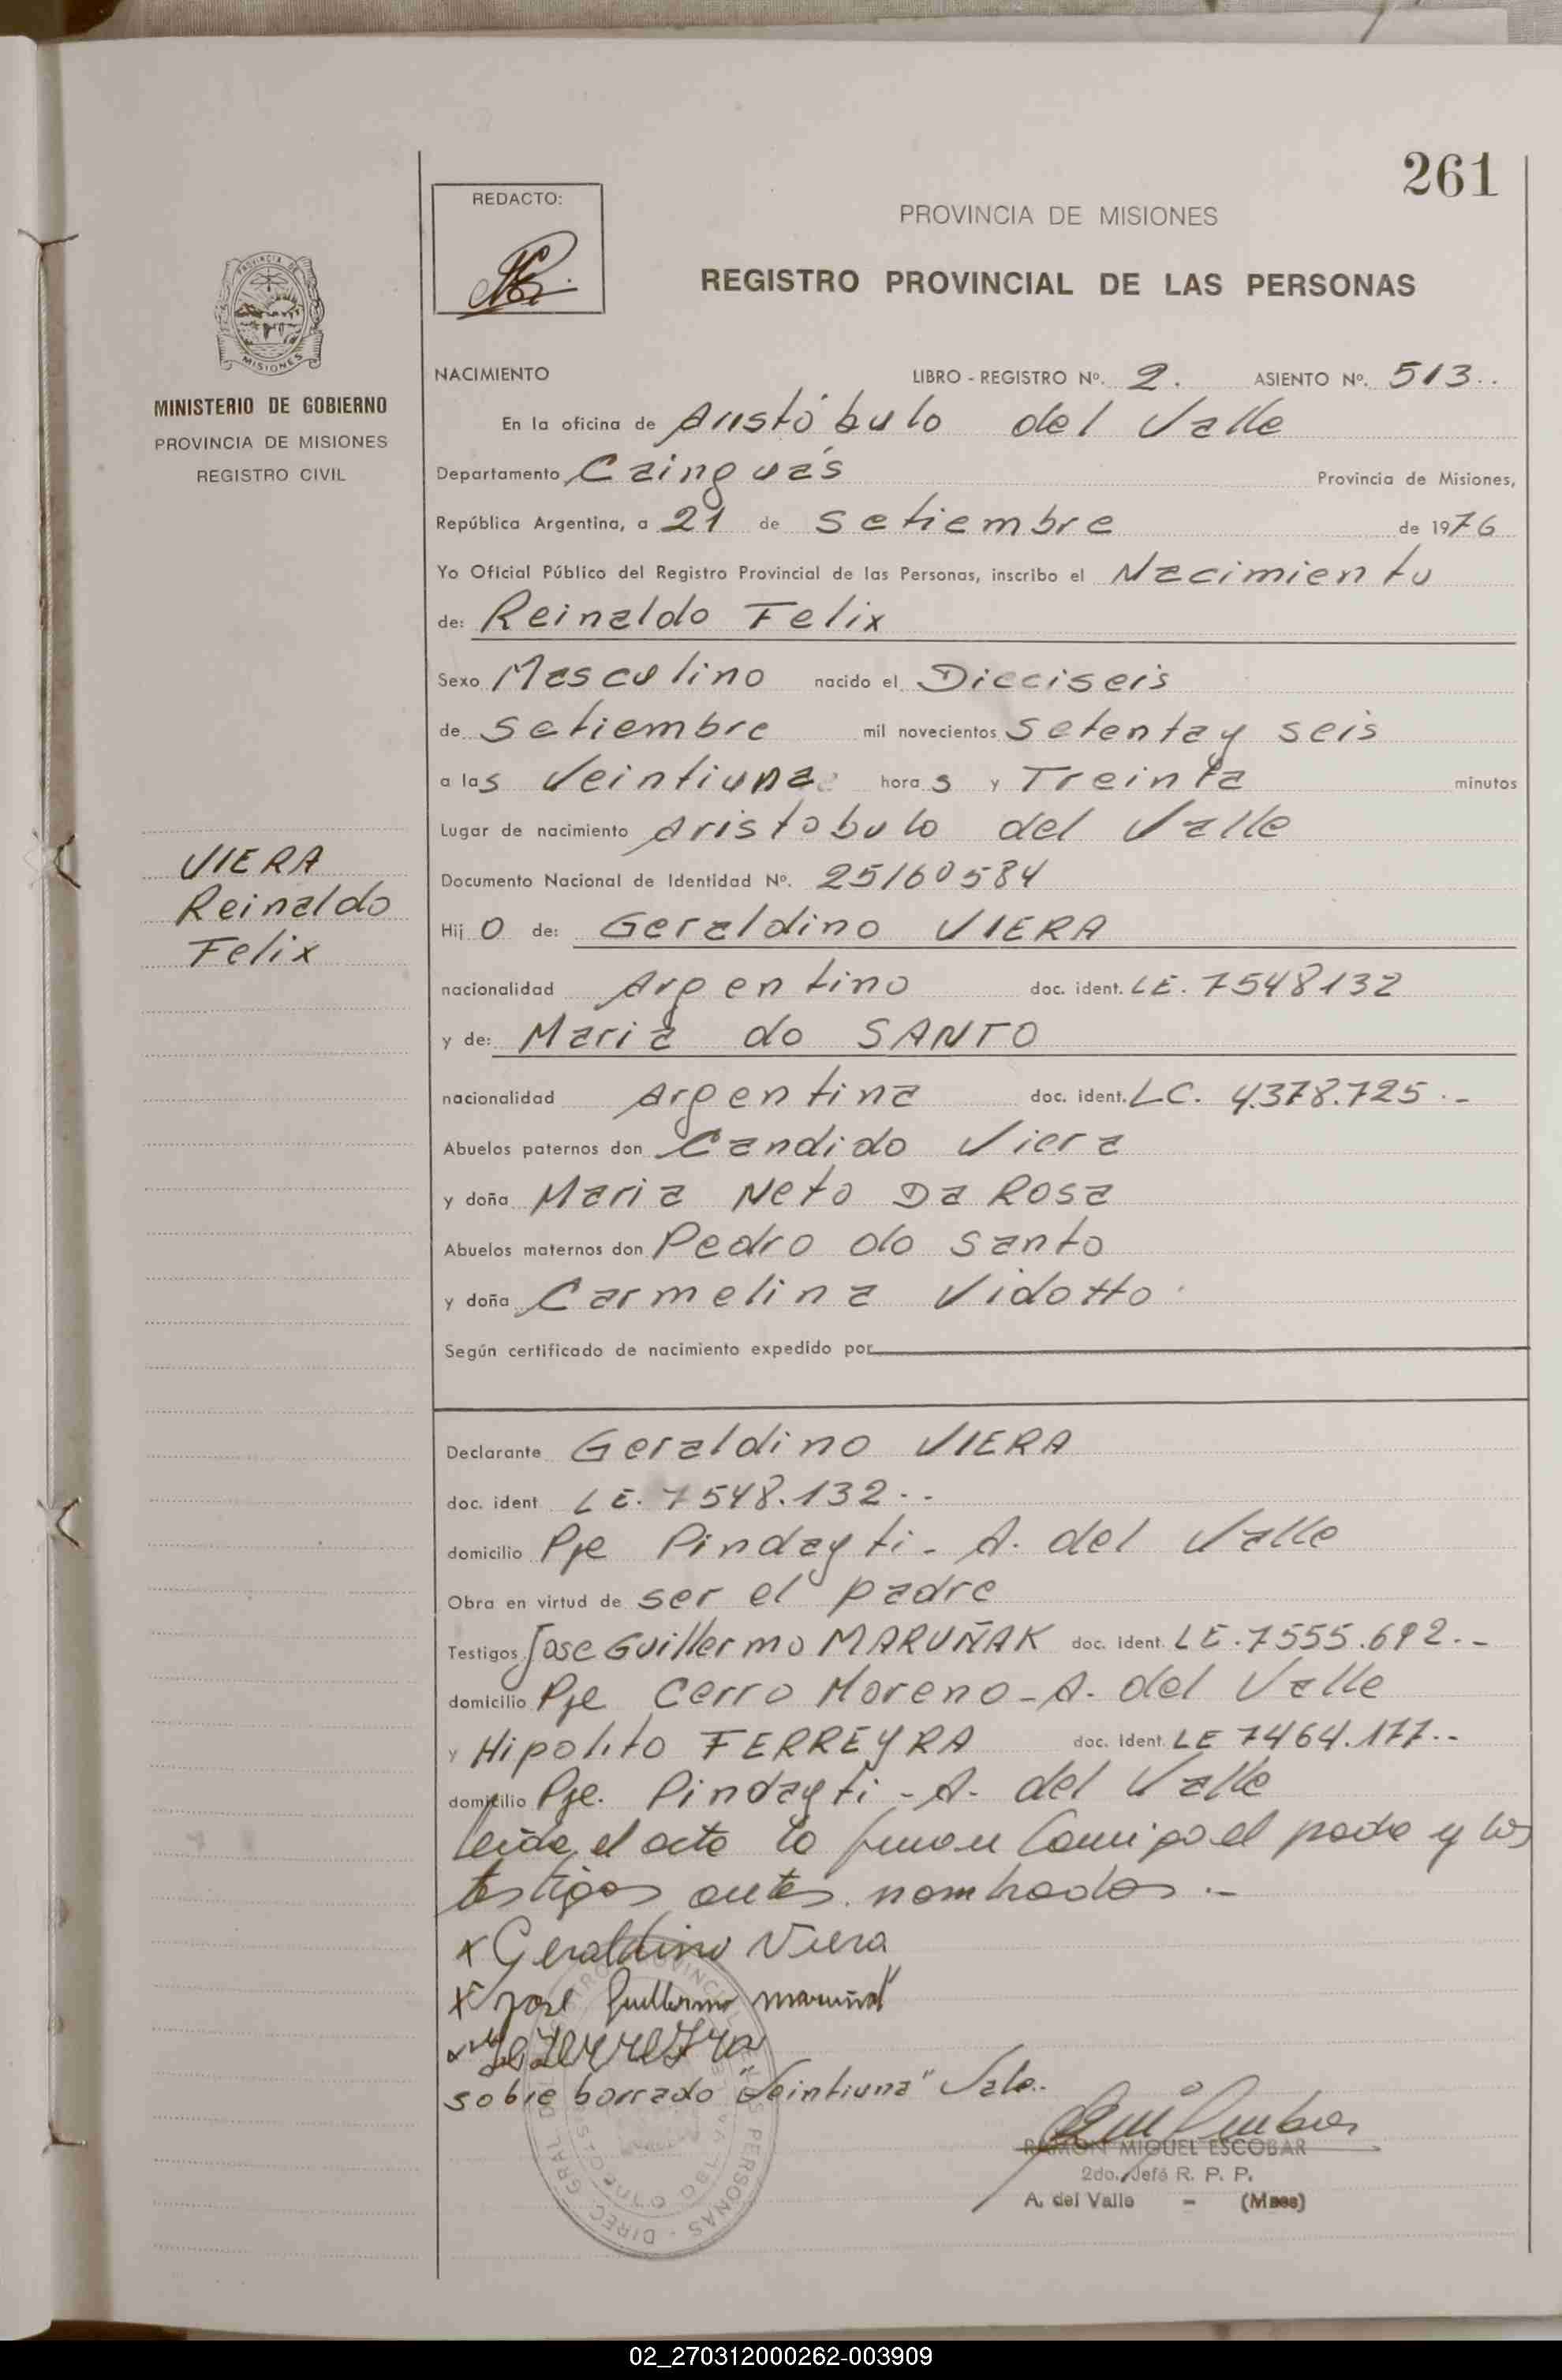 261
REDACTO:
PROVINCIA DE MISIONES
REGISTRO PROVINCIAL DE LAS PERSONAS
PROVINCIA DE
MISIONES
MINISTERIO DE GOBIERNO
PROVINCIA DE MISIONES
REGISTRO CIVIL
NACIMIENTO LIBRO - REGISTRO Nº. 2. ASIENTO Nº. 513..
En la oficina de Aristóbulo del Valle
Departamento Cainguás Provincia de Misiones,
República Argentina, a 21 de Setiembre de 1976
Yo Oficial Público del Registro Provincial de las Personas, inscribo el Nacimiento
de: Reinaldo Felix
Sexo Masculino nacido el Dieciseis
de setiembre mil novecientos setenta y seis
a las Veintiuna horas y Treinta minutos
Lugar de nacimiento Aristobulo del Valle
Documento Nacional de Identidad Nº. 25160584
Hijo de: Geraldino VIERA
nacionalidad Argentino doc. ident. LE. 7548132
y de: Maria do SANTO
nacionalidad Argentina doc. ident. LC. 4.378.725.-
Abuelos paternos don Candido Viera
y doña Maria Neto Da Rosa
Abuelos maternos don Pedro do Santo
y doña Carmelina Vidotto
Según certificado de nacimiento expedido por
VIERA
Reinaldo
Felix
Declarante Geraldino VIERA
doc. ident LE. 7548.132..
domicilio Pje Pindayti - A. del Valle
Obra en virtud de ser el padre
Testigos Jose Guillermo MARUÑAK doc. Ident. LE. 7555.692.-
domicilio Pje Cerro Moreno - A. del Valle
y Hipolito FERREYRA doc. Ident. LE 7464.177.-
domicilio Pje. Pindayti - A. del Valle
Leida el acta la firman Conmigo el padre y los
testigos antes nombrados.-
x Geraldino Viera
x Jose Guillermo maruñak
Ferreyra
sobre borrado "Veintiuna" Vale..
RAMON MIGUEL ESCOBAR
2do. Jefe R. P. P.
A. del Valle - (Mnes)
02_270312000262-003909